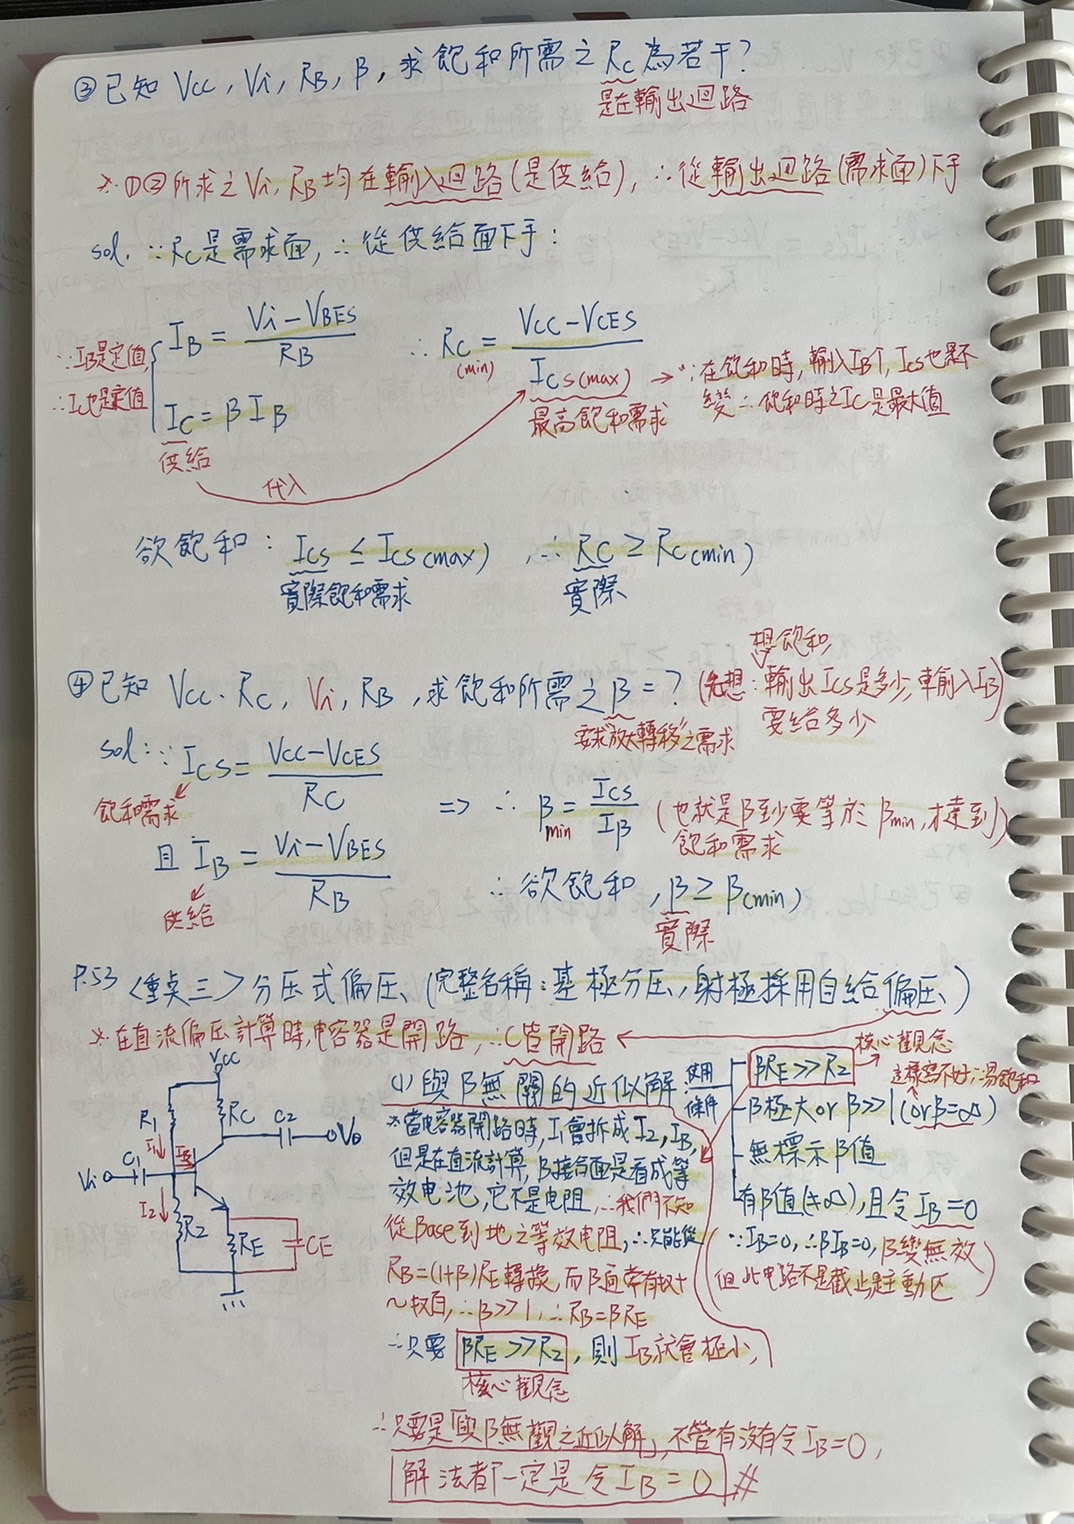 ③已知 Vcc, Vi, RB, β, 求飽和所需之 Rc 為若干?
是在輸出迴路
※①②所求之 Vi, RB均在輸入迴路(是供給), ∴從輸出迴路(需求面)下手
sol. ∵Rc是需求面, ∴從供給面下手:
∵IB是定值, ∴Ic也是定值
IB = (Vi-VBES)/RB
Ic = βIB
供給
代入
∴ Rc(min) = (Vcc-VCES)/Ics(max)
最高飽和需求
→ ∵在飽和時, 輸入IB↑, Ics也是不
變∴飽和時之Ic是最大值
欲飽和: Ics ≤ Ics(max) , ∴ Rc ≥ Rc(min)
實際飽和需求 實際
④已知 Vcc、Rc, Vi, RB, 求飽和所需之β=?
要求"放大轉移"之需求
想飽和,
(先想:輸出Ics是多少, 輸入IB
要給多少)
sol: ∵ Ics = (Vcc-VCES)/Rc
飽和需求
且 IB = (Vi-VBES)/RB
供給
=> ∴ βmin = Ics/IB (也就是β至少要等於βmin, 才達到
飽和需求)
∴欲飽和, β ≥ β(min)
實際
P.53 <重點三>分压式偏压、(完整名稱:基極分压, 射極採用自給偏压)
※在直流偏压計算時, 电容器是開路, ∴C皆開路
Vcc
R1
Rc
C2
Vo
I1
IB
Vi
C1
I2
R2
RE
CE
(1)與β無關的近似解
使用條件
βRE>>R2 → 核心觀念
β極大or β>>1(orβ=∞)
無標示β值
有β值(≠∞), 且令IB=0
(∵IB=0, ∴βIB=0, β變無效
但此电路不是截止是主動区)
※當电容器開路時, I1會拆成I2, IB,
但是在直流計算, B接合面是看成等
效电池, 它不是电阻, ∴我們不知
從Base到地之等效电阻, ∴只能從
RB=(1+β)RE轉換, 而β通常有數十
~數百, ∴β>>1, ∴RB=βRE
∴只要 βRE>>R2, 則IB就會極小,
核心觀念
∴只要是「與β無觀之近似解」, 不管有沒有令IB=0,
解法都「一定是令IB=0 #